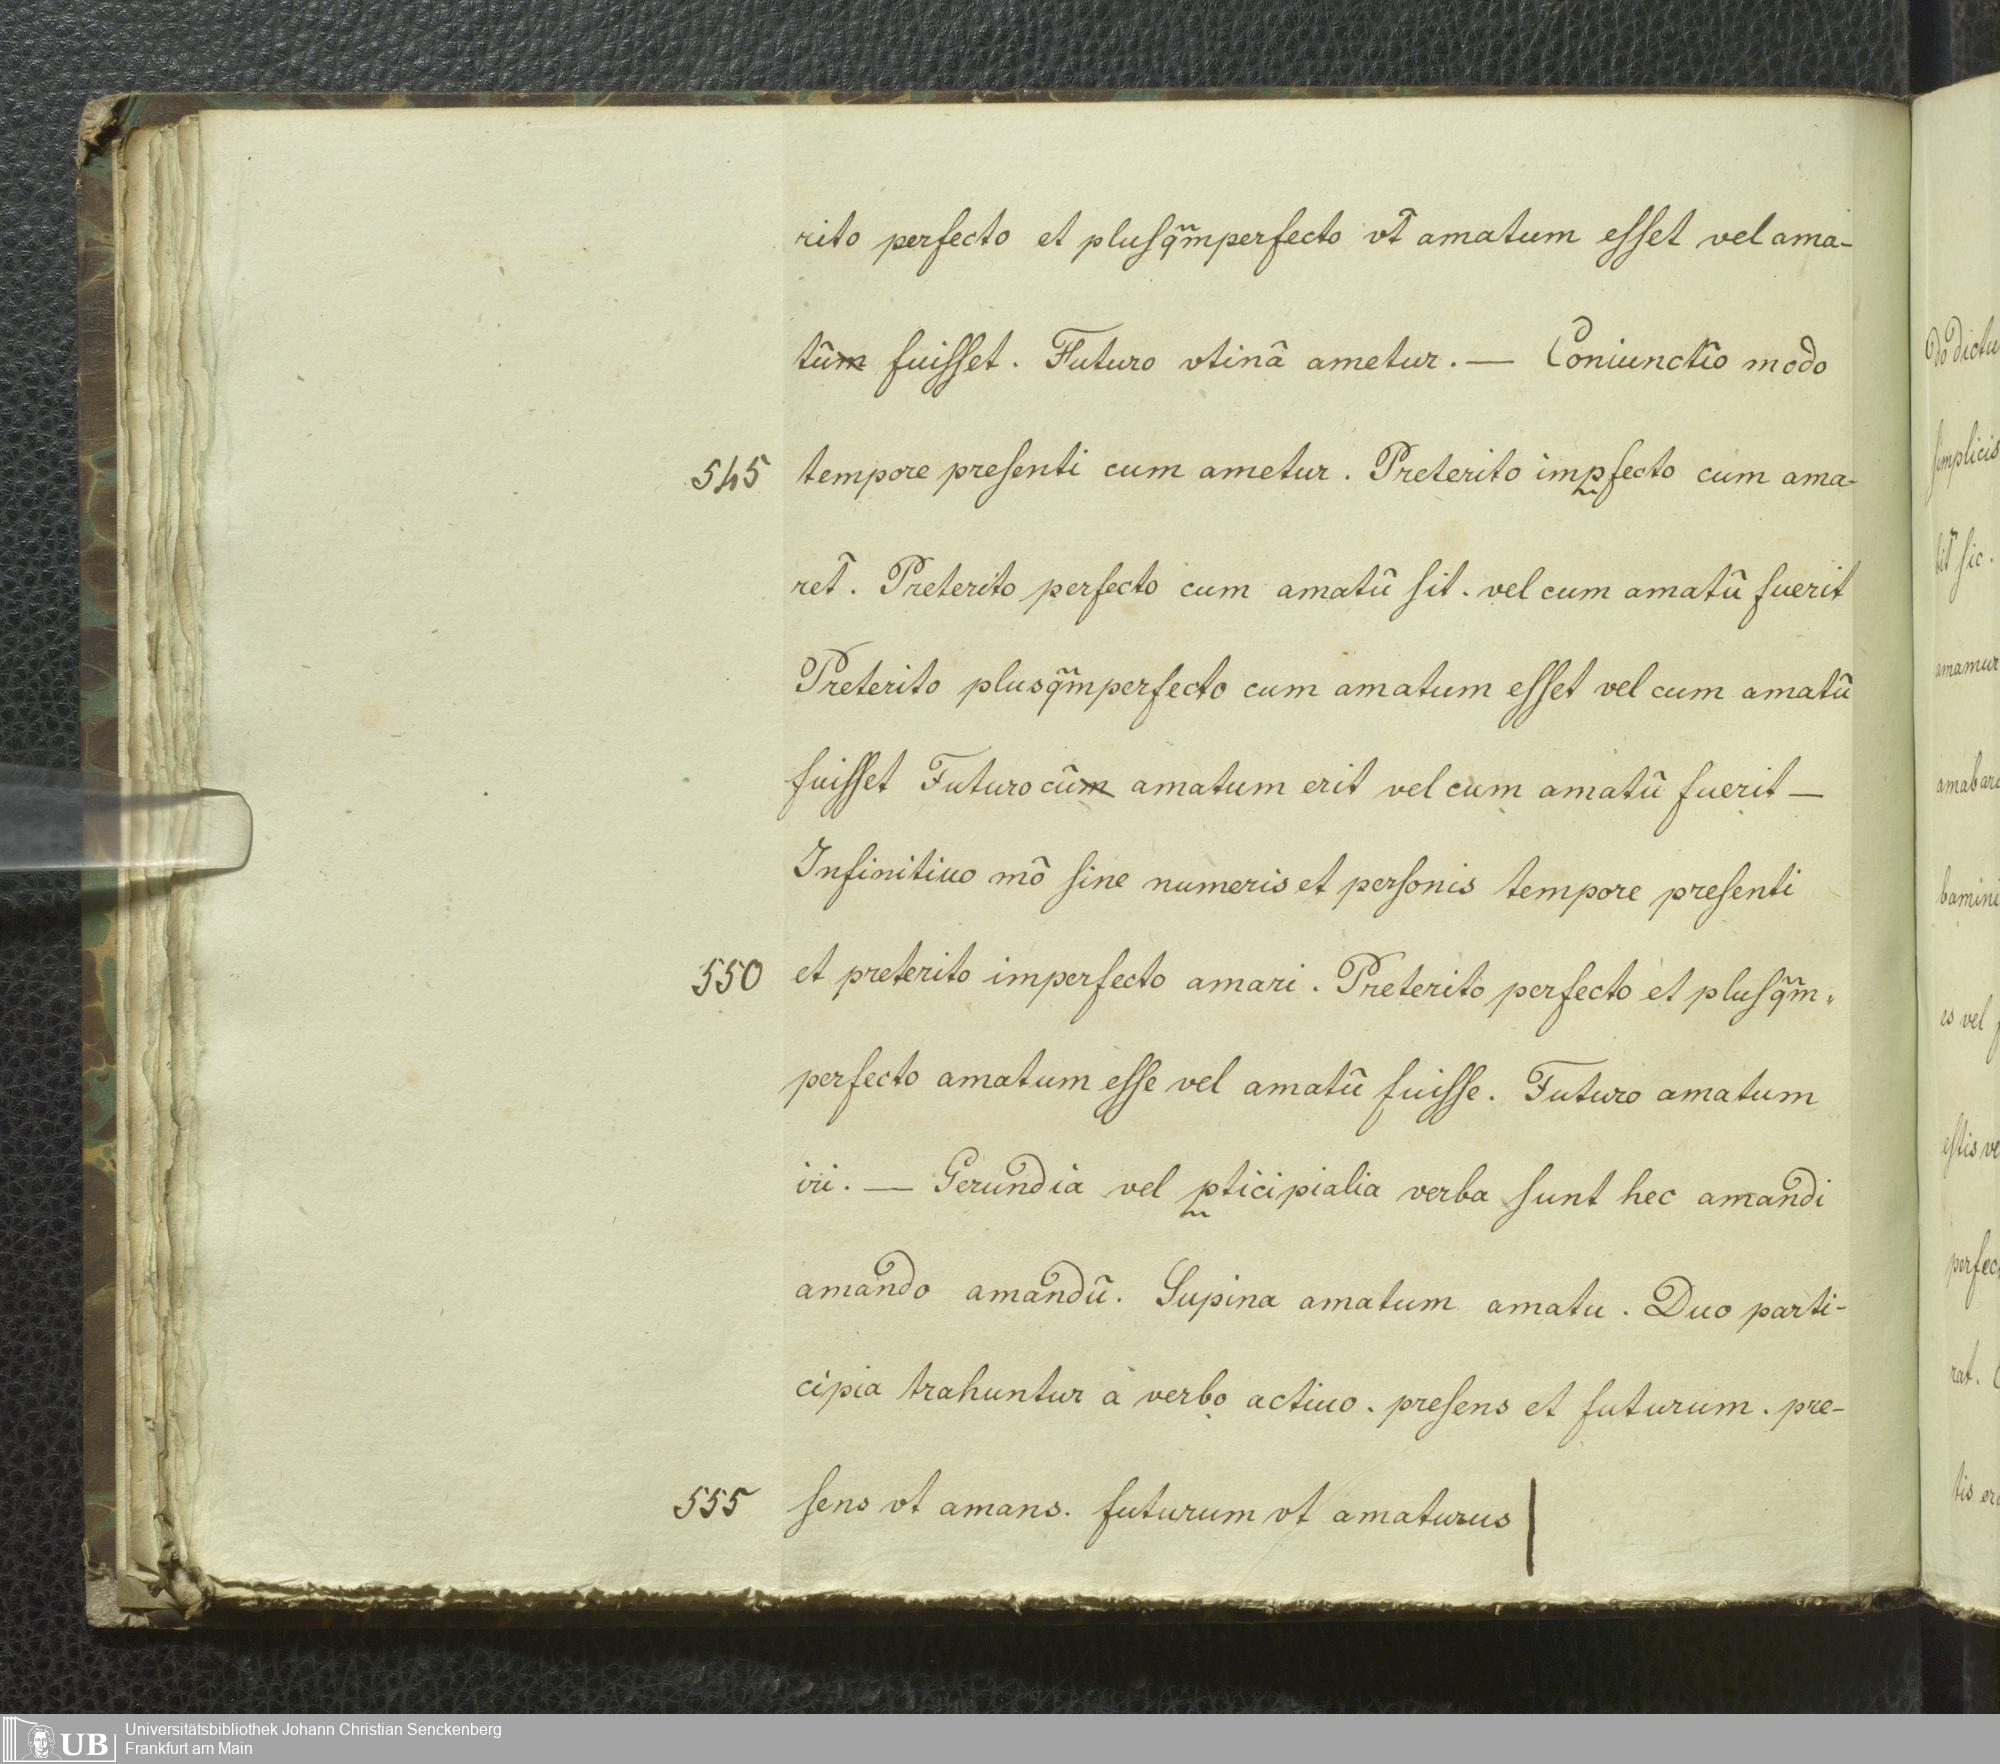 rito perfecto et pluſq̃mperfecto vt̃ amatum eſſet vel ama-
tũm fuiſſet. Futuro vtinã ametur. — Coniunctĩo modo
545 tempore preſenti cum ametur. Preterito imp̱fecto cum ama-
ret̃. Preterito perfecto cum amatũ ſit. vel cum amatũ fuerit
Preterito plusq̃mperfecto cum amatum eſſet vel cum amatũ
fuiſſet Futuro cũm amatum erit vel cum amatũ fuerit —
Infinitiuo mõ ſine numeris et perſonis tempore preſenti
550 et preterito imperfecto amari. Preterito perfecto et pluſq̃m„
perfecto amatum eſſe vel amatũ fuiſſe. Futuro amatum
iri. — Gerundia vel p̱ticipialia verba ſunt hec amandi
amando amandũ. Supina amatum amatu. Duo parti-
cipia trahuntur a verbo actiuo. preſens et futurum. pre-
555 ſens vt amans. futurum vt amaturus |
do dictu
ſimplicis
bit̃ ſic.
amamur
amabar
bamini
es vel
eſtis ve
perfec
rat.
tis er
UB Universitätsbibliothek Johann Christian Senckenberg
Frankfurt am Main